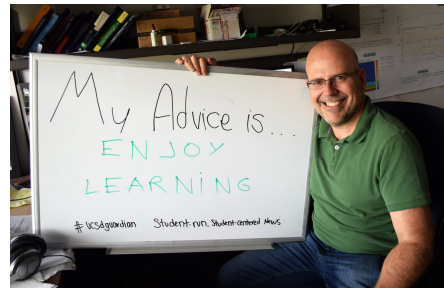 My Advice is...
ENJOY
LEARNiNG
#ucsdguardian Student-run, Student-centered News